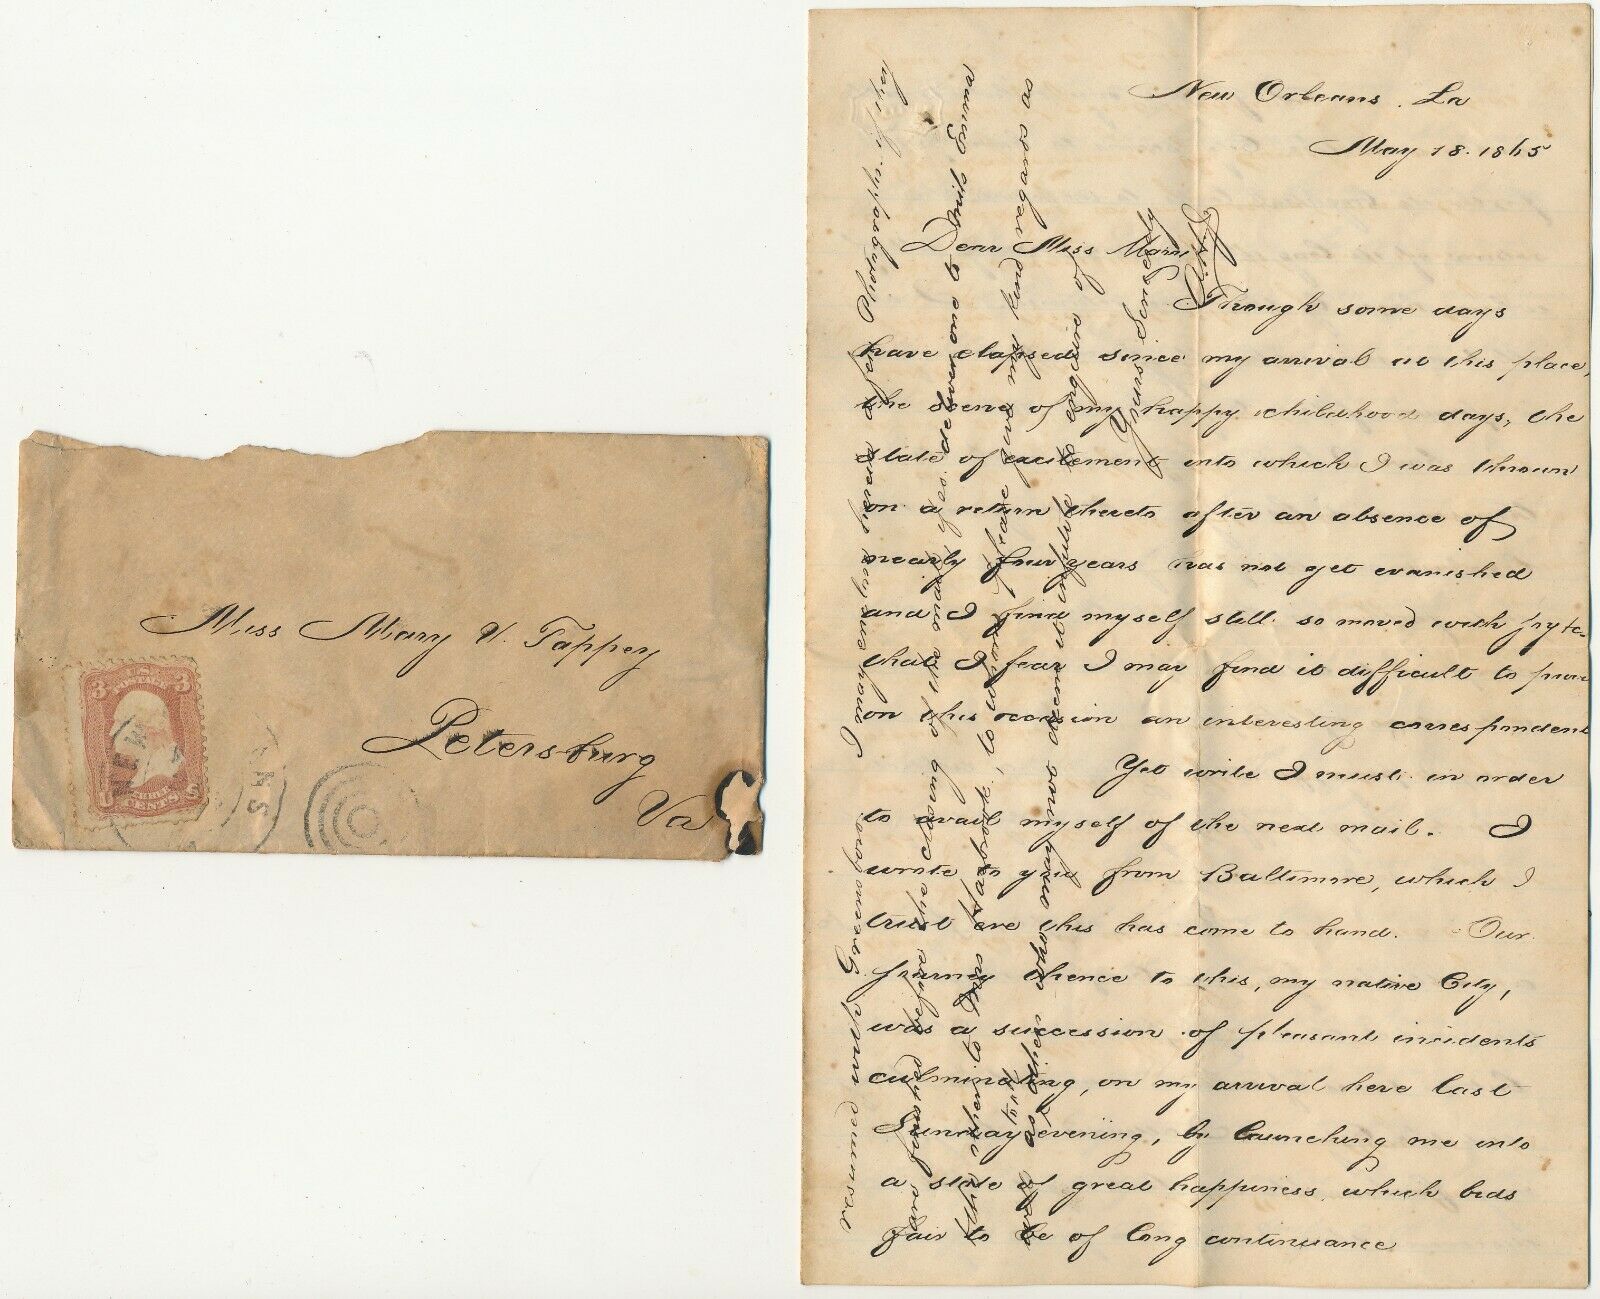 Miss Mary V. Tappey
Petersburg
Va
U.S.
POSTAGE
3 3
THREE
CENTS
NEW
New Orleans. La
May 18. 1865
Dear Miss Mary
Though some days
have elapsed since my arrival at this place,
the scene of my happy childhood days, the
state of excitement into which I was thrown
on a return thereto after an absence of
nearly four years has not yet evanished
and I find myself still so moved with joy
that I fear I may find it difficult to prove
on this occasion an interesting correspondent
Yet write I must in order
to avail myself of the next mail. I
wrote to you from Baltimore, which I
trust ere this has come to hand. Our
journey thence to this, my native City,
was a succession of pleasant incidents
culminating, on my arrival here last
Sunday evening, by launching me into
a state of great happiness, which bids
fair to be of long continuance
before the closing of the mail deliver one to Miss Emma
the other to Mrs Hasbrook, to whom please give my kind regards as
as other who may not deem it infra to enquire of
Yours Sincerely